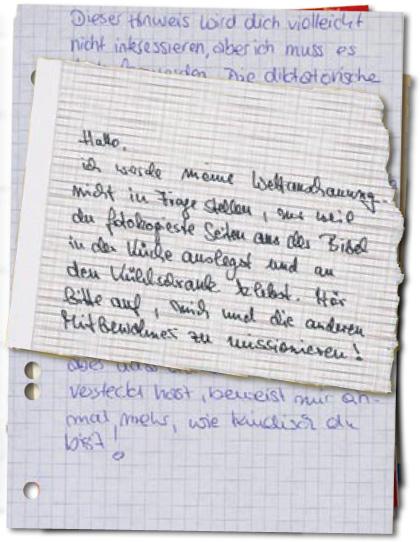 Dieser Hinweis wird dich vielleicht
nicht interessieren, aber ich muss es
Die diktatorische
Hallo,
ich werde meine Weltanschauung
nicht in Frage stellen, nur weil
du fotokopierte Seiten aus der Bibel
in der Küche auslegst und an
den Kühlschrank klebst. Hör
bitte auf, mich und die anderen
Mitbewohner zu missionieren!
aber dass
versteckt hast, beweist nur ein-
mal mehr, wie kindisch du
bist!